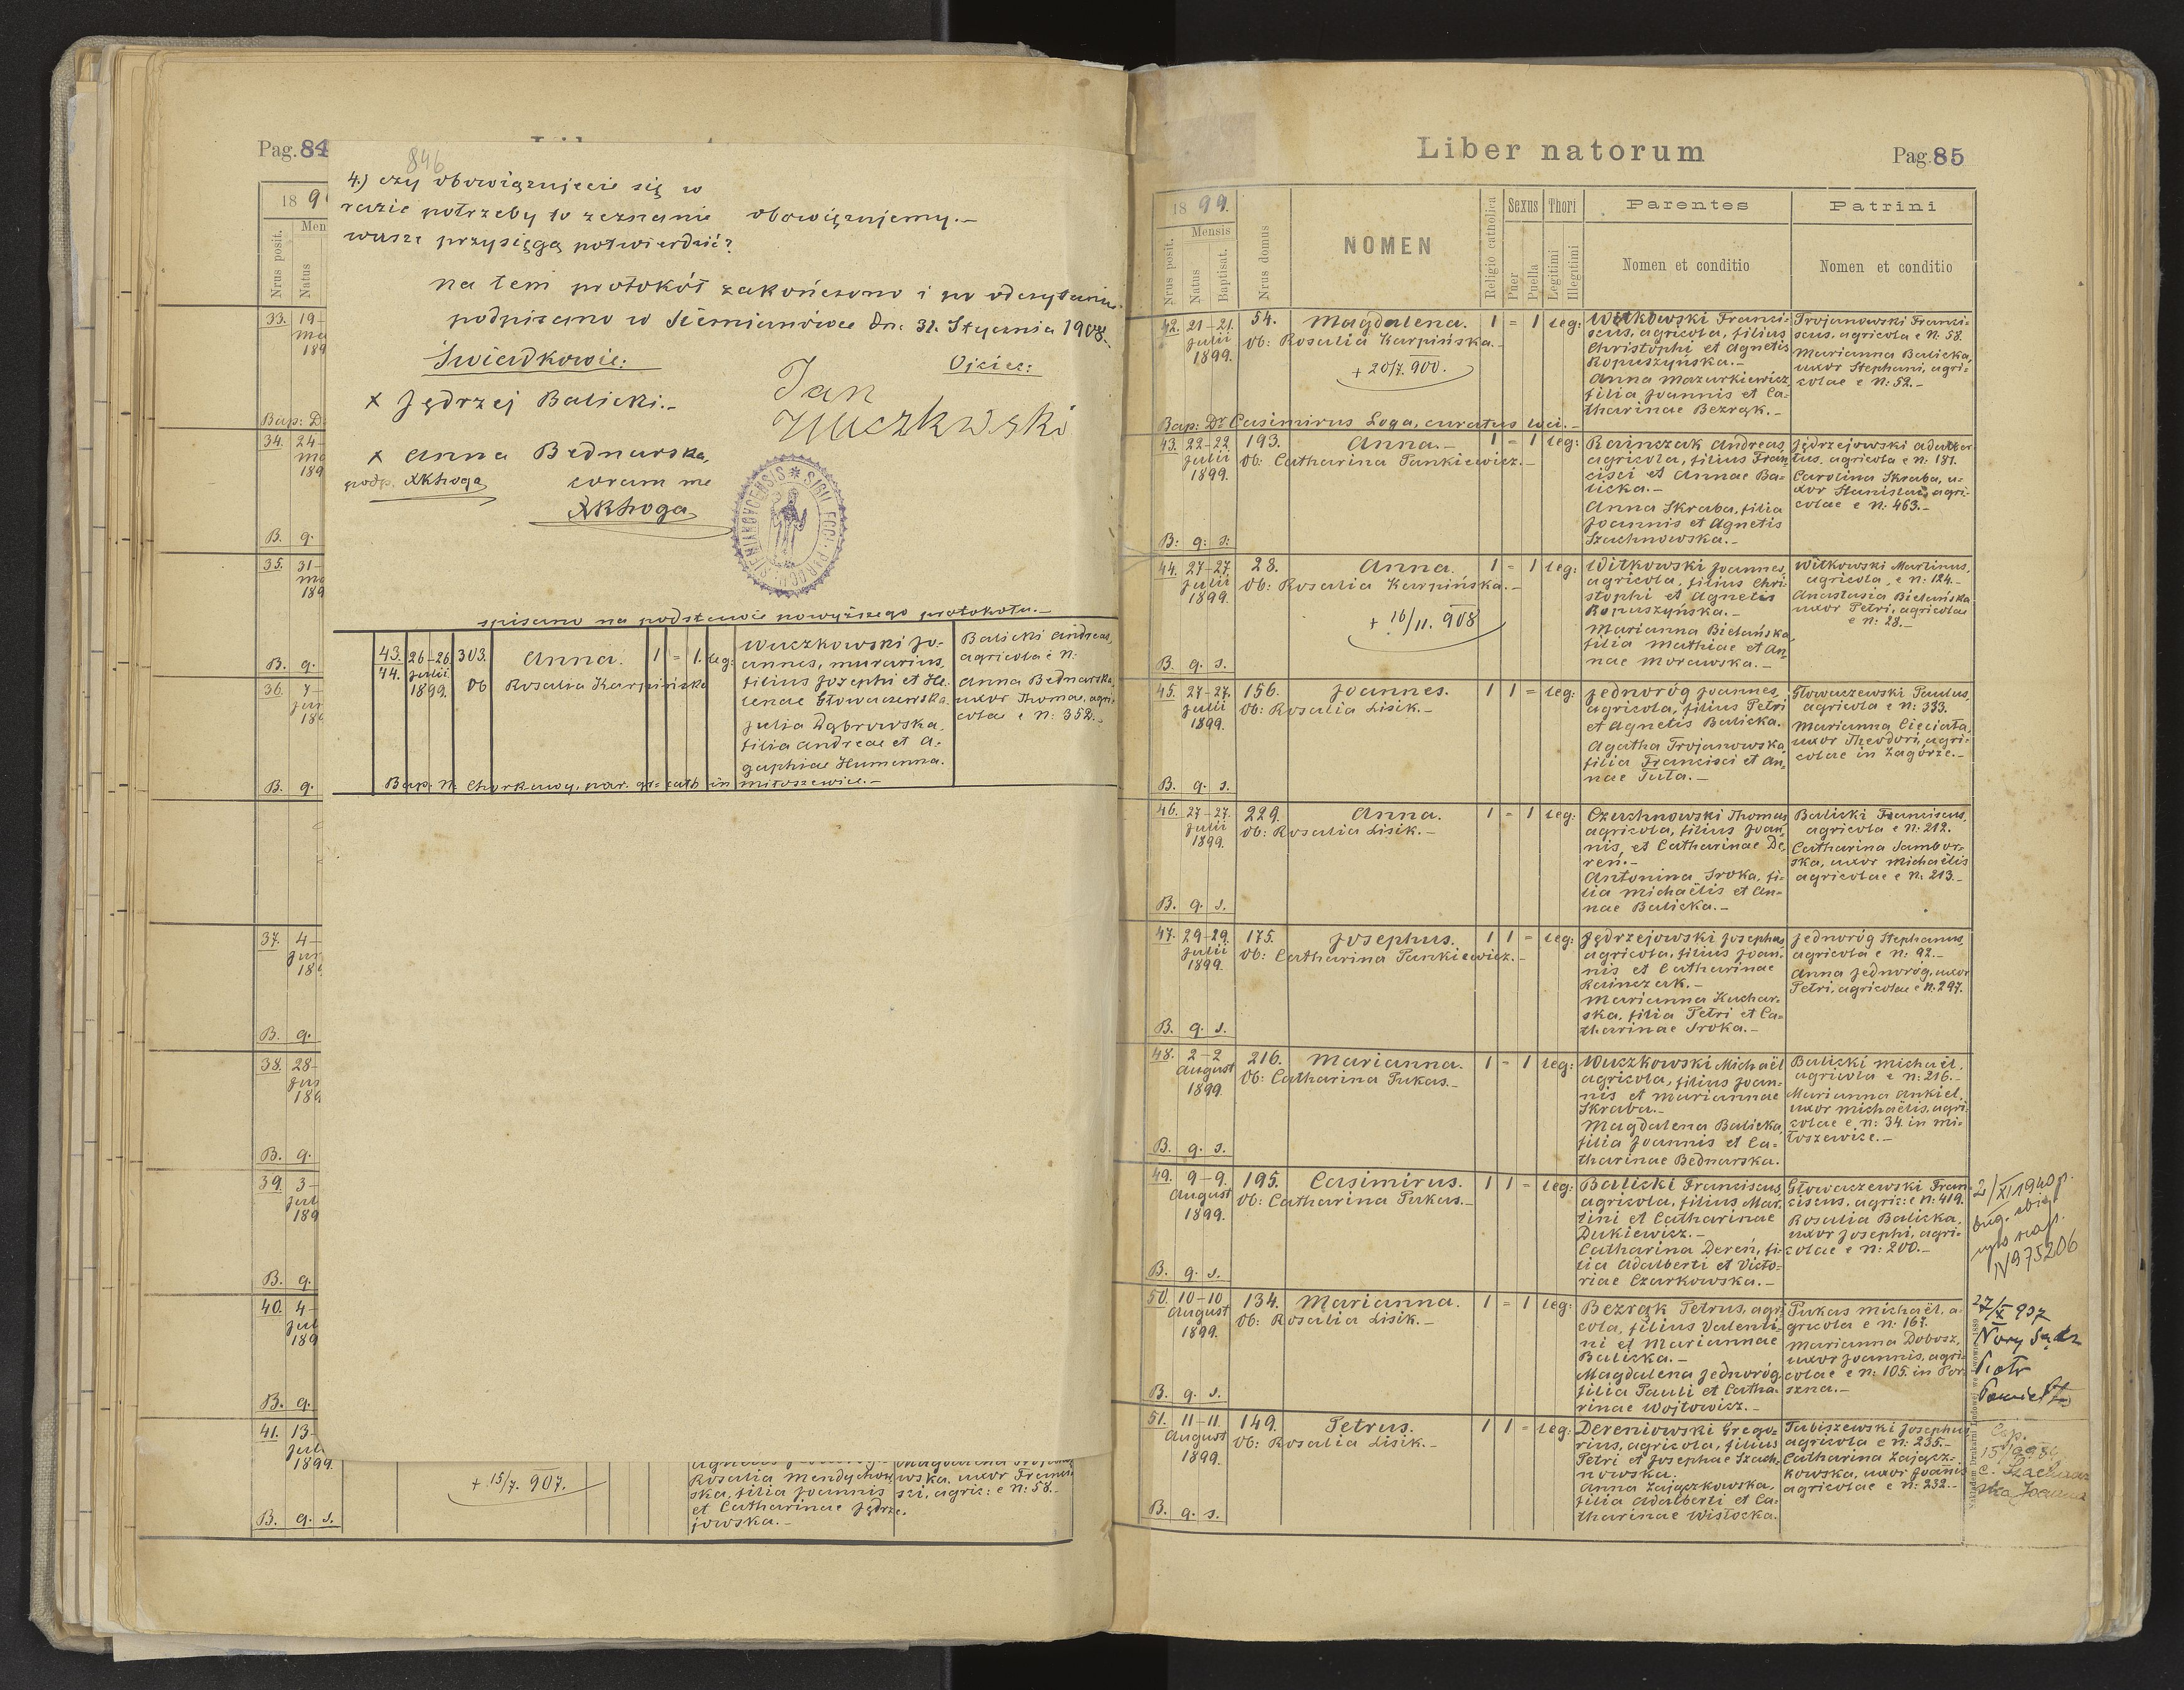 Pag. 84
846
4.) czy obowiązujecie się w
razie potrzeby to zeznanie obowiązujemy.-
wasze przysięgą potwierdzić?
na tem protokół zakończono i po odczytaniu
podpisano w Siemianówce dn: 31. Stycznia 1908.
Świadkowie: Ojciec:
x Jędrzej Balicki.- Jan
Wuczkowski
x Anna Bednarska,
podp. XKLoga coram me
XKLoga
SIGIL. ECCL. PAROCH. SIEMIANOVCENSIS
spisano na podstawie powyższego protokołu.-
43. 26-26. 303. Anna. 1 = 1. leg: Wuczkowski Jo-
44. Julii Ob Rosalia Karpińska
1899.
annes, murarius,
filius Josephi et He-
lenae Głowaczewska.
Julia Dąbrowska,
filia Andreae et A-
gaphiae Humenna.
Balicki Andreas,
agricola e n:
Anna Bednarska,
uxor Thomae, agri-
colae e n: 352.-
Bap. N. Chorkawy, par. gr: cath in Miłoszewice.-
18 9
Nrus posit.
Men
Natus
33. 19-
189
Bap: D
34. 24-
189
B. q.
35. 31-
189
B. q.
36. 7-
B. q.
37. 4-
B. q.
38. 28-
B. q.
39. 3-
189
B. q.
40. 4-
189
B. q.
41. 13-
1899.
+ 15/7. 907.
Rosalia Mendychow-
ska, filia Joannis
et Catharinae Jędrze-
jowska.-
wska, uxor Franci-
sci, agric: e n: 58.-
B. q. s.
Liber natorum
Pag. 85
18 99.
Nrus posit.
Mensis
Natus
Baptisat.
Nrus domus
NOMEN
Religio catholica
Sexus
Puer
Puella
Thori
Legitimi
Illegitimi
Parentes
Nomen et conditio
Patrini
Nomen et conditio
42. 21-21. 54. Magdalena. 1 = 1 leg:
Julii Ob: Rosalia Karpińska.-
1899.
+ 20/7. 900.
Witkowski Franci-
scus, agricola, filius
Christophi et Agnetis
Kopuszyńska.-
Anna Mazurkiewicz,
filia Joannis et Ca-
tharinae Bezrąk.-
Trojanowski Franci-
scus, agricola e N: 58.
Marianna Balicka,
uxor Stephani, agri-
colae e n: 52.-
Bap: Dr Casimirus Loga, curatus loci.-
43. 22-22. 193. Anna.- 1 - 1 leg:
Julii Ob: Catharina Pankiewicz.-
1899.
Rainczak Andreas,
agricola, filius Fran-
cisci et Annae Ba-
licka.-
Anna Skraba, filia
Joannis et Agnetis
Szachnowska.-
Jędrzejowski Adalber-
tus, agricola e n: 181.
Carolina Skraba, u-
xor Stanislai, agri-
colae e n: 463.-
B: q: s:
44. 27-27. 28. Anna. 1 - 1 leg:
Julii Ob: Rosalia Karpińska.-
1899.
+ 16/11. 908
Witkowski Joannes,
agricola, filius Chri-
stophi et Agnetis
Kopuszyńska.-
Marianna Bielańska,
filia Mathiae et An-
nae Morawska.-
Witkowski Martinus,
agricola, e n: 124.-
Anastasia Bielańska
uxor Petri, agricolae
e n: 28.-
B. q. s.
45. 27-27. 156. Joannes. 1 1 = leg:
Julii Ob: Rosalia Lisik.-
1899.
Jednoróg Joannes,
agricola, filius Petri
et Agnetis Balicka.
Agatha Trojanowska,
filia Francisci et An-
nae Tuta.-
Głowaczewski Paulus,
agricola e n: 333.
Marianna Cieciała,
uxor Theodori, agri-
colae in Zagórze.-
B. q. s.
46. 27-27. 229. Anna. 1 - 1 leg:
Julii Ob: Rosalia Lisik.-
1899.
Czuchnowski Thomas
agricola, filius Joan-
nis, et Catharinae De-
reń.-
Antonina Sroka, fi-
lia Michaëlis et An-
nae Balicka.-
Balicki Franciscus,
agricola e n: 212.
Catharina Sambor-
ska, uxor Michaëlis
agricolae e n: 213.-
B. q. s.
47. 29-29. 175. Josephus. 1 1 = leg:
Julii Ob: Catharina Pankiewicz.-
1899.
Jędrzejowski Josephus,
agricola, filius Joan-
nis et Catharinae
Rainczak.-
Marianna Kuchar-
ska, filia Petri et Ca-
tharinae Sroka.-
Jednoróg Stephanus,
agricola e n: 92.-
Anna Jednoróg, uxor
Petri, agricolae e n: 297.
B. q. s.
48. 2-2 216. Marianna. 1 - 1 leg:
August Ob: Catharina Pukas.-
1899.
Wuczkowski Michaël
agricola, filius Joan-
nis et Mariannae
Skraba.-
Magdalena Balicka,
filia Joannis et Ca-
tharinae Bednarska.
Balicki Michaël,
agricola e n: 216.-
Marianna Ankiel,
uxor Michaëlis, agri-
colae e n: 34 in Mi-
łoszewice.-
B. q. s.
49. 9-9. 195. Casimirus. 1 1 = leg:
August Ob: Catharina Pukas.-
1899.
Balicki Franciscus,
agricola, filius Mar-
tini et Catharinae
Dukiewicz.-
Catharina Dereń, fi-
lia Adalberti et Victo-
riae Czarkowska.-
Głowaczewski Fran-
ciscus, agric: e n: 419.
Rosalia Balicka,
uxor Josephi, agri-
colae e n: 200.-
2/XI 1940 r.
N 975206
B. q. s.
50. 10-10 134. Marianna. 1 - 1 leg:
August Ob: Rosalia Lisik.-
1899.
Bezrąk Petrus, agri-
cola, filius Valenti-
ni et Mariannae
Balicka.-
Magdalena Jednoróg,
filia Pauli et Catha-
rinae Wojtowicz.-
Pukas Michaël, a-
gricola e n: 167.
Marianna Dobosz,
uxor Joannis, agri-
colae e n: 105. in Por-
szna.-
27/X 937
Nowy Sącz
Piotr
B. q. s.
51. 11-11. 149. Petrus. 1 1 - leg:
August Ob: Rosalia Lisik.-
1899.
Dereniowski Grego-
rius, agricola, filius
Petri et Josephae Szach-
nowska.
Anna Zajączkowska,
filia Adalberti et Ca-
tharinae Wisłocka.
Tabiszewski Josephus,
agricola e n: 235.-
Catharina Zającz-
kowska, uxor Joannis
agricolae e n: 232.-
B. q. s.